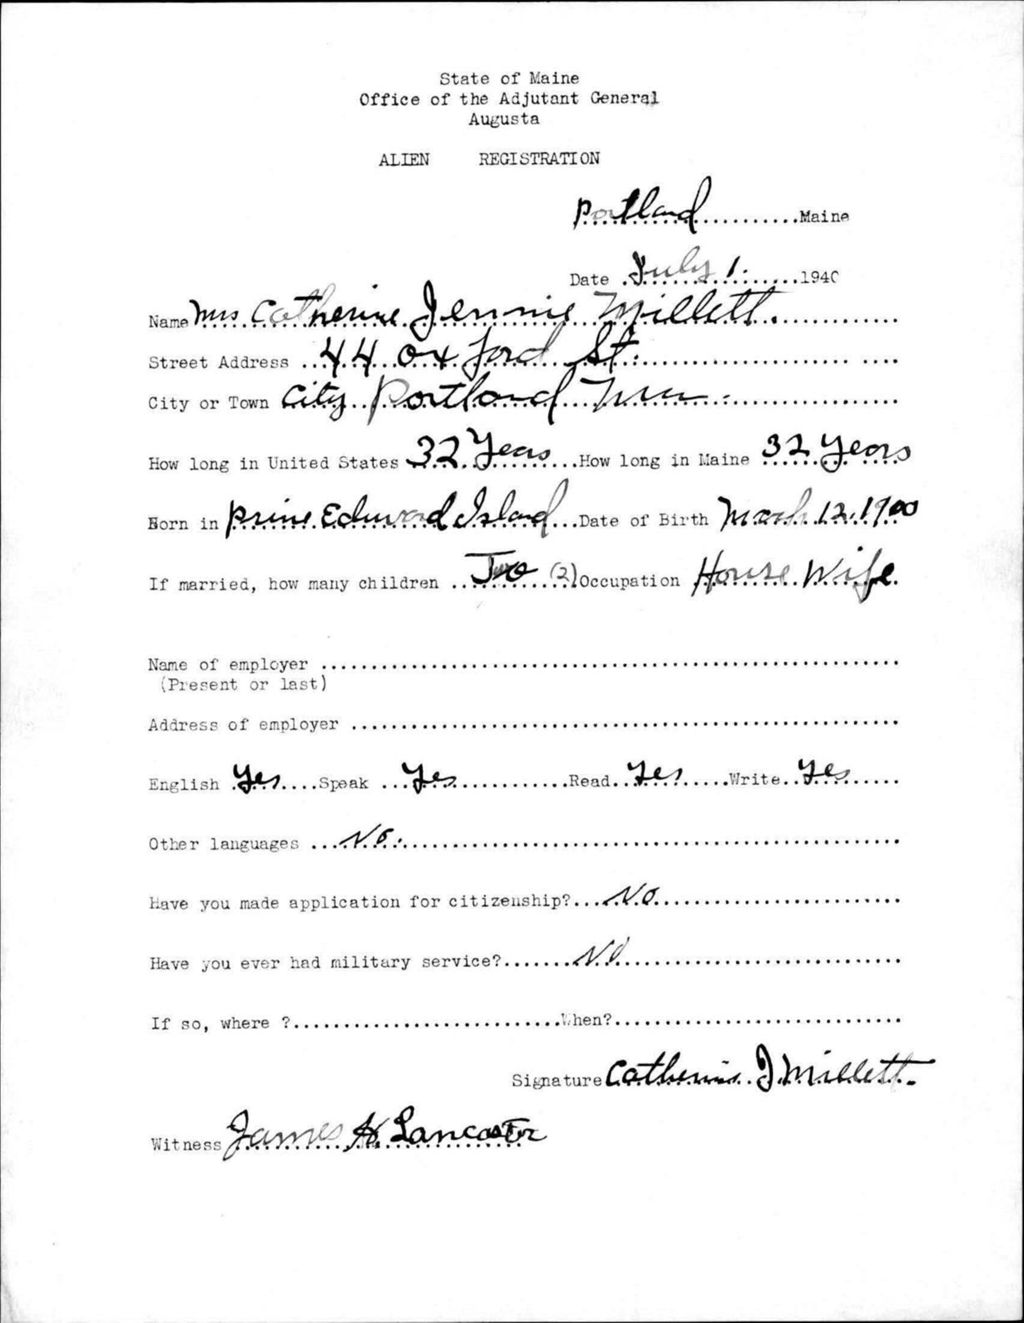 State of Maine
Office of the Adjutant General
Augusta
ALIEN REGISTRATION
Portland Maine
Date July 1. 1940
Name Mrs Catherine Jennie Millett.
Street Address 44 Oxford St.
City or Town City Portland
How long in United States 32 Years How long in Maine 32 Years
Born in Prine Edward Island Date of Birth March 12, 1900
If married, how many children Two (2) Occupation House Wife
Name of employer
(Present or last)
Address of employer
English Yes Speak Yes Read Yes Write Yes
Other languages No.
Have you made application for citizenship? No
Have you ever had military service? No
If so, where ? When?
Signature Catherine J. Millett.
Witness James H. Lancaster